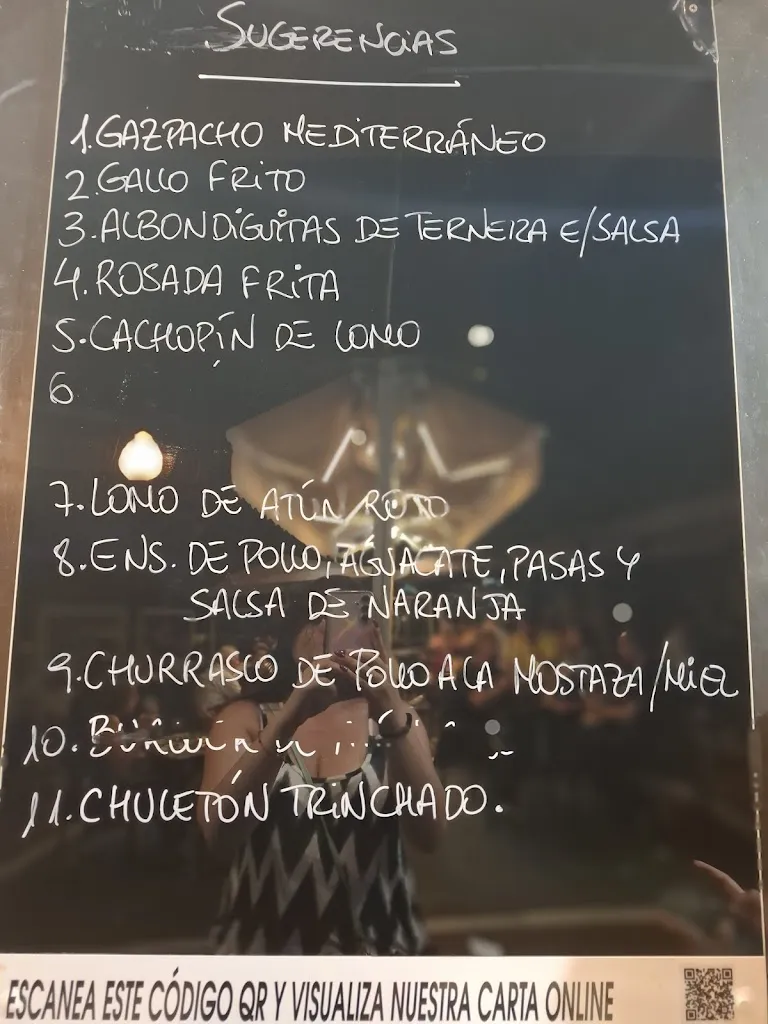 SUGERENCIAS
1. GAZPACHO MEDITERRÁNEO
2. GALLO FRITO
3. ALBONDIGUITAS DE TERNERA E/SALSA
4. ROSADA FRITA
5. CACHOPÍN DE LOMO
6
7. LOMO DE ATÚN ROJO
8. ENS. DE POLLO, AGUACATE, PASAS Y
SALSA DE NARANJA
9. CHURRASCO DE POLLO A LA MOSTAZA/MIEL
10.
11. CHULETÓN TRINCHADO.
ESCANEA ESTE CÓDIGO QR Y VISUALIZA NUESTRA CARTA ONLINE